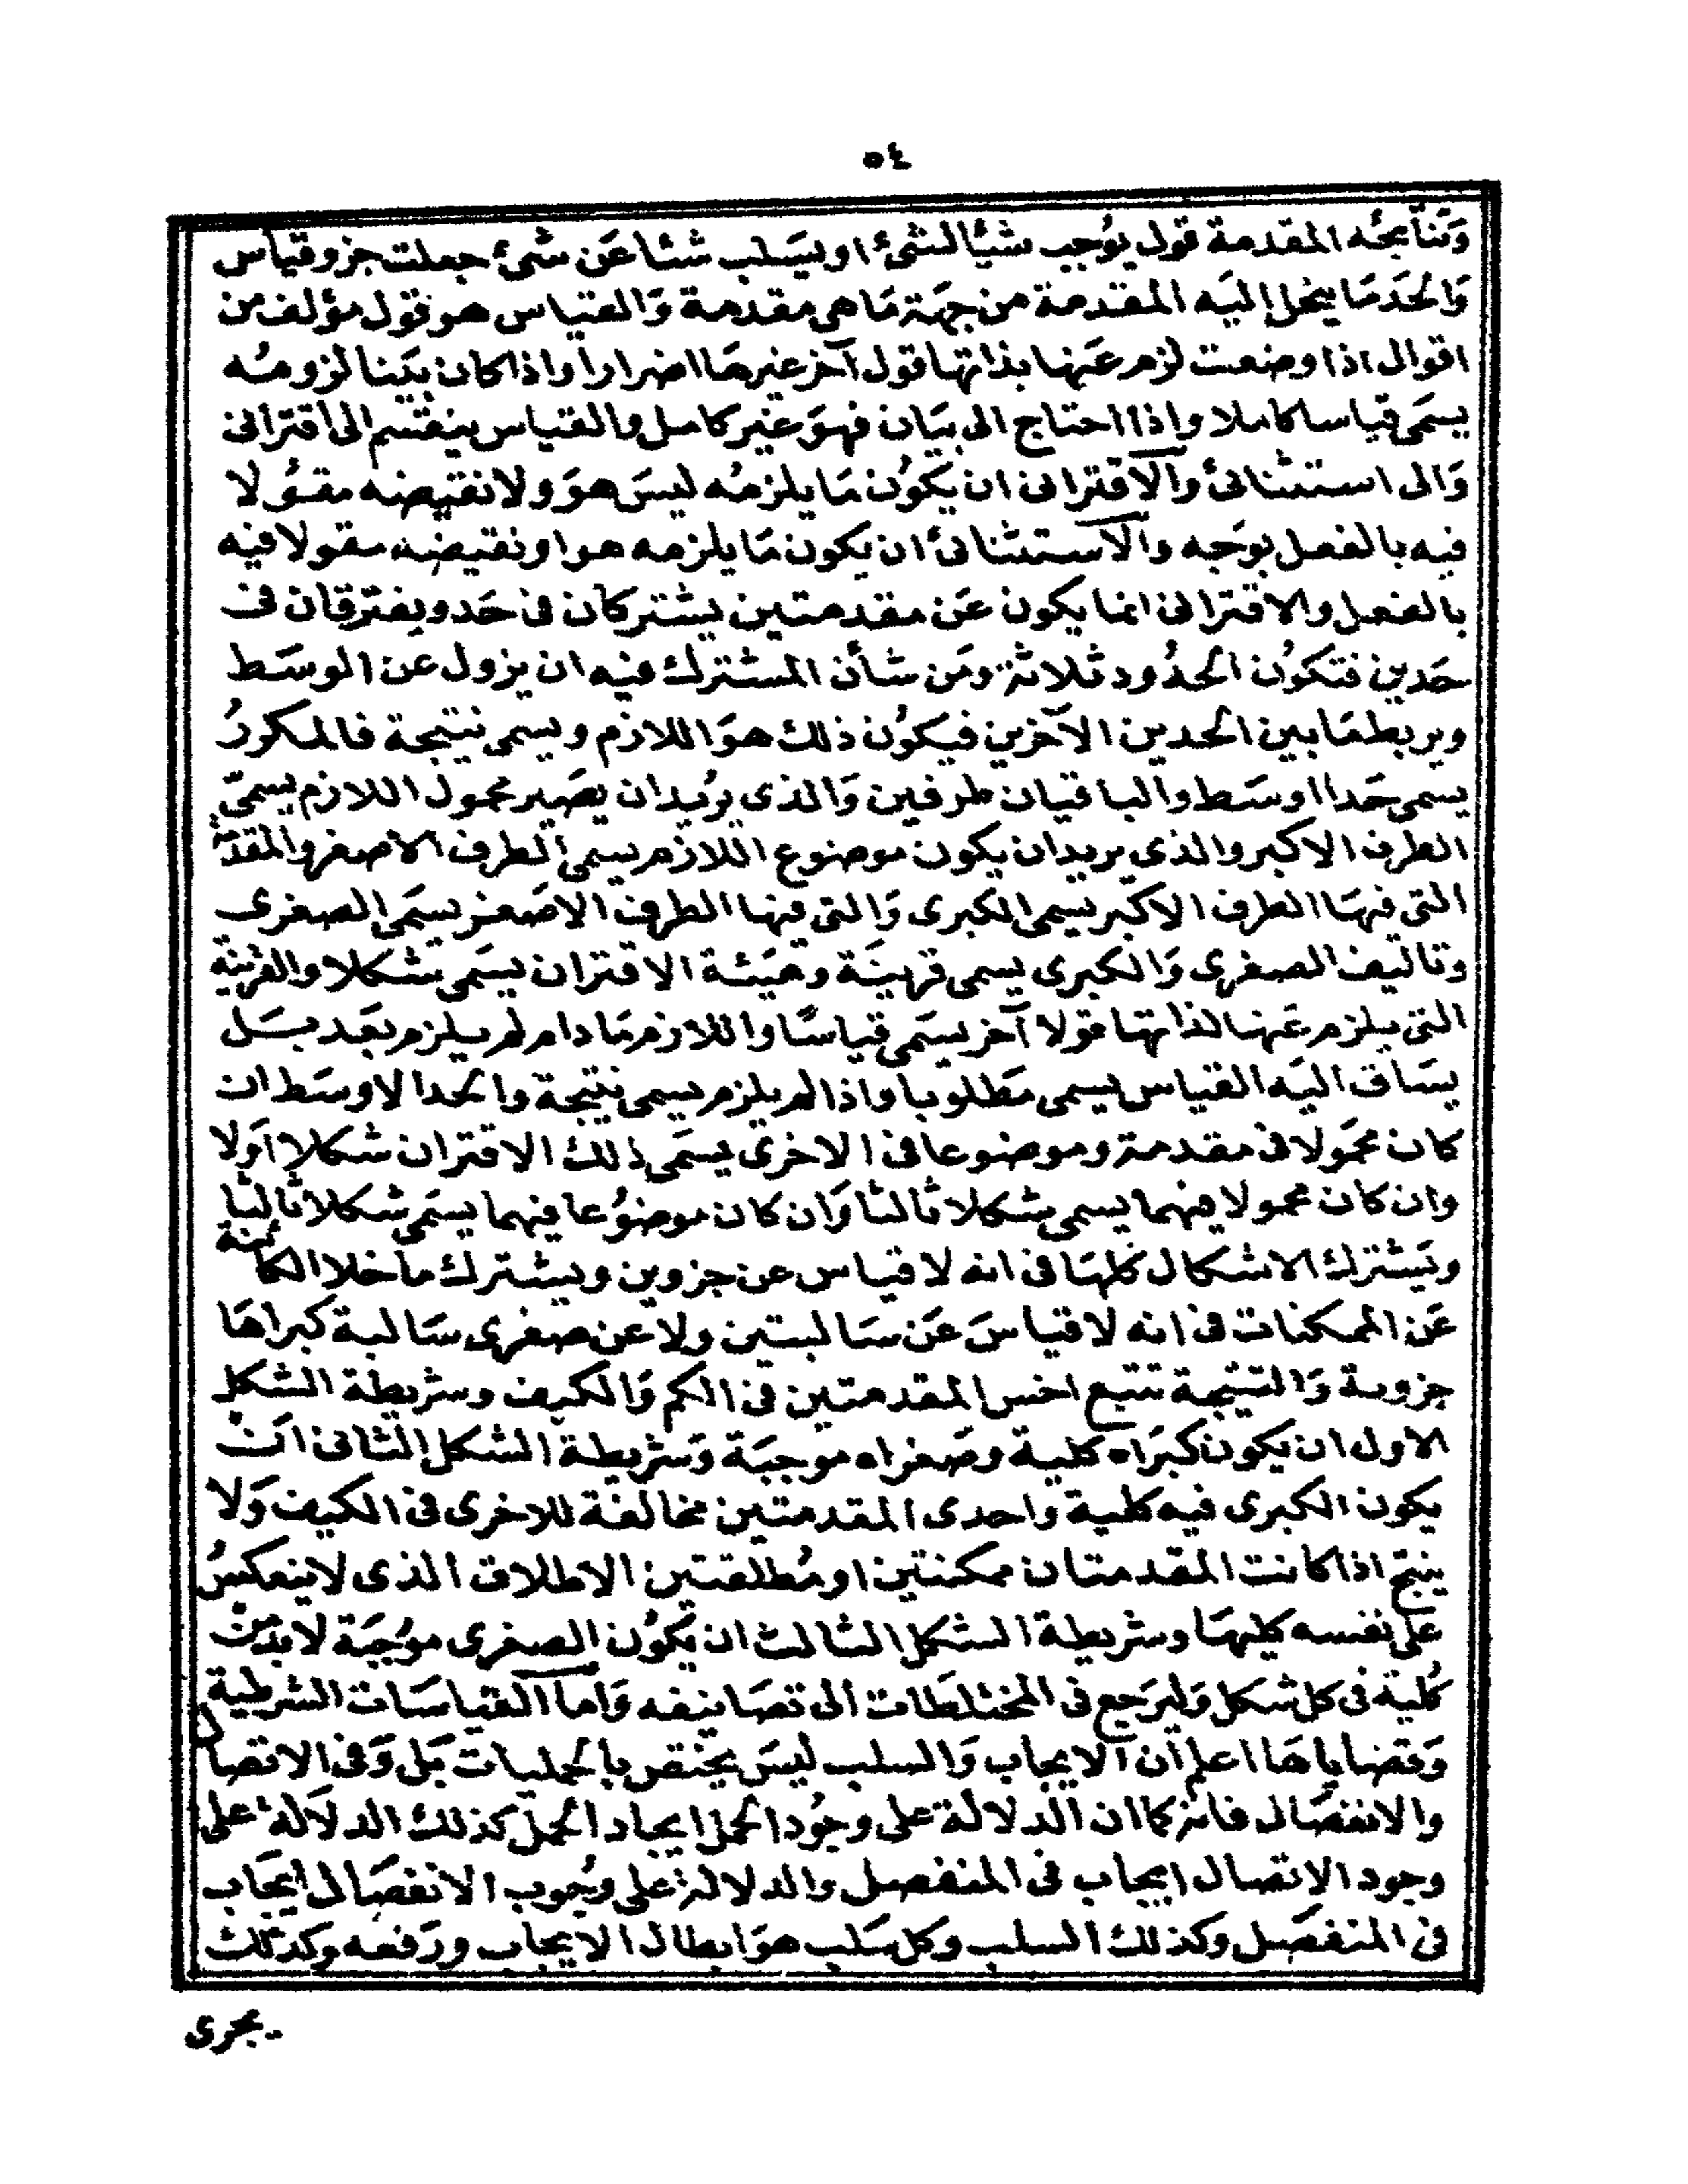 ٥٤
وَنتائجُه المقدمة قول يوُجب شيْأ لشئ او يسَلب شئا عَن شئ جعلت جزو قياس
وَالحَد مَا ينحل إليَه المقدمة من جهَة مَا هى مقدمة وَالقياس هو قول مؤلف من
اقوال اذا وضعت لزم عَنها بذاتها قول آخر غيرهَا اضرارا واذا كان بيَنا لزومُه
يسمَى قياسا كاملا واذا احتاج الى بيَان فهوَ غير كامل والقياس ينقسم الى اقترانى
وَالى استثنائئ والاقترانى ان يكوُن مَا يلزمُه ليسَ هوَ ولا نقيضه مقوُلا
فيه بالفعل بوَجه والاستثنائئ ان يكون مَا يلزمه هو او نقيضه مقولا فيه
بالفعل والاقترانى انما يكون عَن مقدمتين يشتركان فى حَد ويفترقان فى
حَدين فتكوُن الحدُود ثلاثة ومَن شأن المشترك فيه ان يزول عن الوسَط
ويربط مَا بين الحدين الآخرين فيكوُن ذلك هوَ اللازم ويسمى نتيجة فالمكررُ
يسمى حَدا اوسَط والباقيان طرفين وَالذى يرُيد ان يصَير محمول اللازم يسمىّ
الطرف الاكبر والذي يريد ان يكون موضوع اللازم يسمى الطرف الاصغر والمقدمة
التى فيهَا الطرف الاكبر يسمى الكبرى وَالتى فيها الطرف الاصَغر يسمَى الصغرى
وتاليف الصغرى وَالكبرى يسمى قرينَة وهيَئة الاقتران يسمَى شكلا والقرينة
التى يلزم عَنها لذاتها قولا آخر يسمَى قياسًا واللازم مَا دام لم يلزم بعَد بسَل
يسَاق اليَه القياس يسمى مَطلوبا واذا لم يلزم يسمى نتيجة والحد الاوسَط ان
كان محمَولا فى مقدمة وموضوعا فى الاخرى يسمَى ذلك الاقتران شكلا اوَلا
وان كان محمولا فيهما يسمى شكلا ثالثا وَان كان موضوُعا فيهما يسمَى شكلا ثالثا
ويَشترك الاشكال كلهَا فى انه لا قياس عن جزوين ويشترك ما خلا الكائنة
عَن الممكنات فى انه لا قياسَ عَن سَالبتين ولا عن صغرى سَالبة كبراهَا
جزوية وَالنتيجة تتبع اخس المقدمتين فى الكم وَالكيف وشريطة الشكل
الاول ان يكون كبرَاه كلية وصَغراه موجبَة وَشريطة الشكل الثانى انَ
يكون الكبرى فيه كلية واحدى المقدمتين مخالفة للاخرى فى الكيف وَلا
ينتج اذا كانت المقدمتان ممكنتين او مُطلقتين الاطلاق الذى لا ينعكسُ
على نفسه كليهَا وشريطة الشكل الثالث ان يكوُن الصغرى موُجبَة لا بدّ من
كُلية فى كل شكل وَليرَجع فى المختلطَات الى تصَانيفه وَاما القياسَات الشرطية
وَقضاياهَا اعلم أن الايجاب وَالسلب ليسَ يختص بالحمليات بَل وَفى الاتصال
والانفصَال فانه كما ان الدلالة على وجُود الحمل ايجاد الحمل كذلك الدلَالة على
وجود الاتصال ايجاب فى المنفصل والدلالة على وجُوب الانفصَال ايجَاب
فى المنفصَل وكذلك السلب وكل سَلب هوَ ابطال الايجاب ورَفعه وكذلك
يجرى